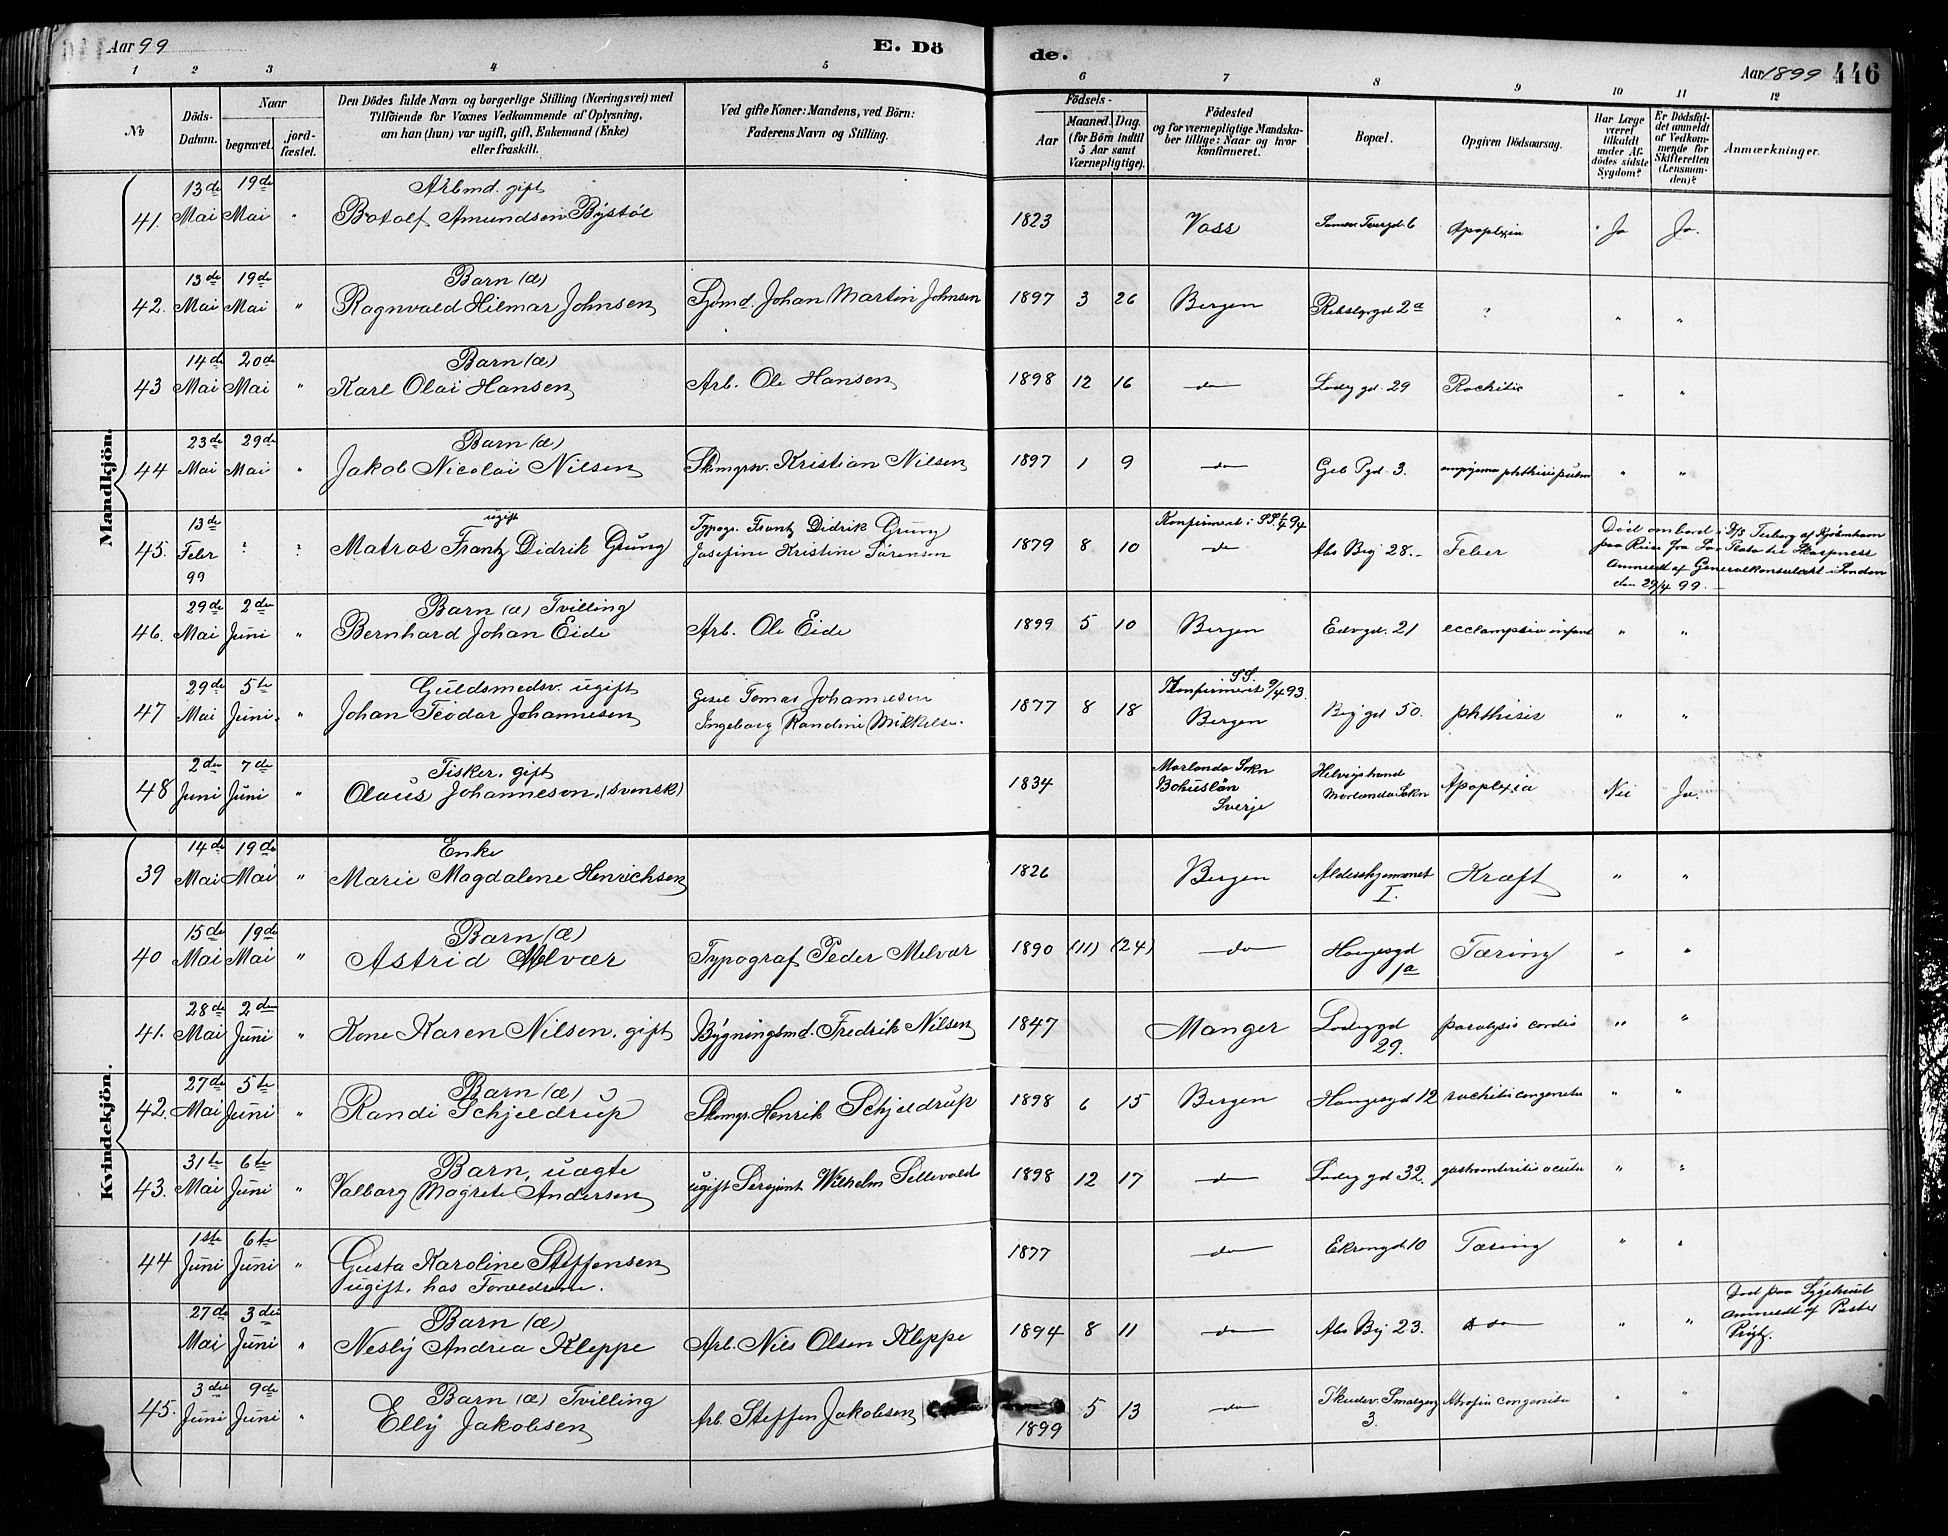 Aar 99 E. Dö de. Aar 1899 446
1 2 3 4 5 6 7 8 9 10 11 12
No
Döds-Datum.
Naar
begravet.
jord-fæstet.
Den Dödes fulde Navn og borgerlige Stilling (Næringsvei) med
Tilföiende for Voxnes Vedkommende af Oplysning,
om han (hun) var ugift, gift, Enkemand (Enke)
eller fraskilt.
Ved gifte Koner: Mandens, ved Börn:
Faderens Navn og Stilling.
Födsels-
Aar
Maaned. Dag.
(for Börn indtil
5 Aar samt
Værnepligtige).
Födested
og for værnepligtige Mandska-
ber tillige: Naar og hvor
konfirmeret.
Bopæl.
Opgiven Dödsaarsag.
Har Læge
været
tilkaldt
under Af-
dödes sidste
Sygdom?
Er Dödsfal-
det anmeldt
af Vedkom-
mende for
Skifteretten
(Lensman-
den)?
Anmærkninger.
Mandkjön.
13de 19de Arbmd. gift
41. Mai Mai " Botolf Amundsen Bystöl 1823 Voss 6 Apoplexia Ja Ja.
13de 19de Barn (æ)
42. Mai Mai " Ragnvald Hilmar Johnsen Sjömd. Johan Martin Johnsen 1897 3 26 Bergen 2a ? " "
14de 20de Barn (æ)
43 Mai Mai " Karl Olai Hansen Arb. Ole Hansen 1898 12 16 do Ladeggd. 29 Rachitis " "
23de 29de Barn (æ)
44 Mai Mai " Jakob Nicolai Nilsen Skmgrsv. Kristian Nilsen 1897 1 9 do 3. phthisis pulm " "
13de ugift Typogr. Frantz Didrik Grung Konfirmert i
45. Febr ? ? Matros Frantz Didrik Grung Josefine Kristine Sörensen 1879 8 10 do 28. Feber
99
Död ombord i D/S af Kjöbenhavn
paa Reise fra La Plata til
Anmeldt af Generalkonsulatet i London
den 29/4 99.
29de 2den Barn (æ) Tvilling
46. Mai Juni " Bernhard Johan Eide Arb. Ole Eide 1899 5 10 Bergen Edvgd. 21 ecclampsia infant " "
29de 5te Guldsmedsv. ugift Tomas Johannesen SS. Konfirmeret 9/4 93.
47 Mai Juni. " Johan Teodor Johannesen Ingeborg Randine 1877 8 18 Bergen 50. phthisis " "
2den 7de Fisker. gift Morlanda Sokn
48 Juni Juni " Olaus Johanneson. (svensk) 1834 Bohuslän Morlanda Sokn Apoplexia Nei Ja.
Sverje
Kvindekjön.
14de 19de Enke
39 Mai Mai " Marie Magdalene Henrichsen 1826 Bergen Aldershjemmet I. Kræft " "
15de 19de Barn (æ)
40 Mai Mai " Astrid Melvær Typograf Peder Melvær 1890 (11) (24) do Haugesgd 1a Tæring " "
28de 2den
41. Mai Juni " Kone Karen Nilsen. gift Bygningsmd. Fredrik Nilsen 1847 Manger Ladeggd 29. paralysis cordis " "
27de 5te Barn (æ)
42. Mai Juni " Randi Schjeldrup Skomgr. Henrik Schjeldrup 1898 6 15 Bergen Haugesgd 12 rachitis congenita " "
31te 6te Barn, uægte
43. Mai Juni " Valborg Magrete Andersen ugift Sersjant Wilhelm Sellevold 1898 12 17 do Ladeg gd 32. gastroenteritis acuta " "
1ste 6te
44 Juni Juni " Gusta Karoline Steffensen 1877 do 10 Tæring " "
ugift. hos Forældrene.
27de 3die Barn (æ)
Mai Juni " Nesly Andrea Kleppe Arb. Nils Olsen Kleppe 1894 8 11 do 23. do " "
Död paa Sygehuset
anmeldt af
3die 9de Barn (æ) Tvilling
45. Juni Juni " Elly Jakobsen Arb. Steffen Jakobsen 1899 5 13 do 3. Atrofia congenita " "